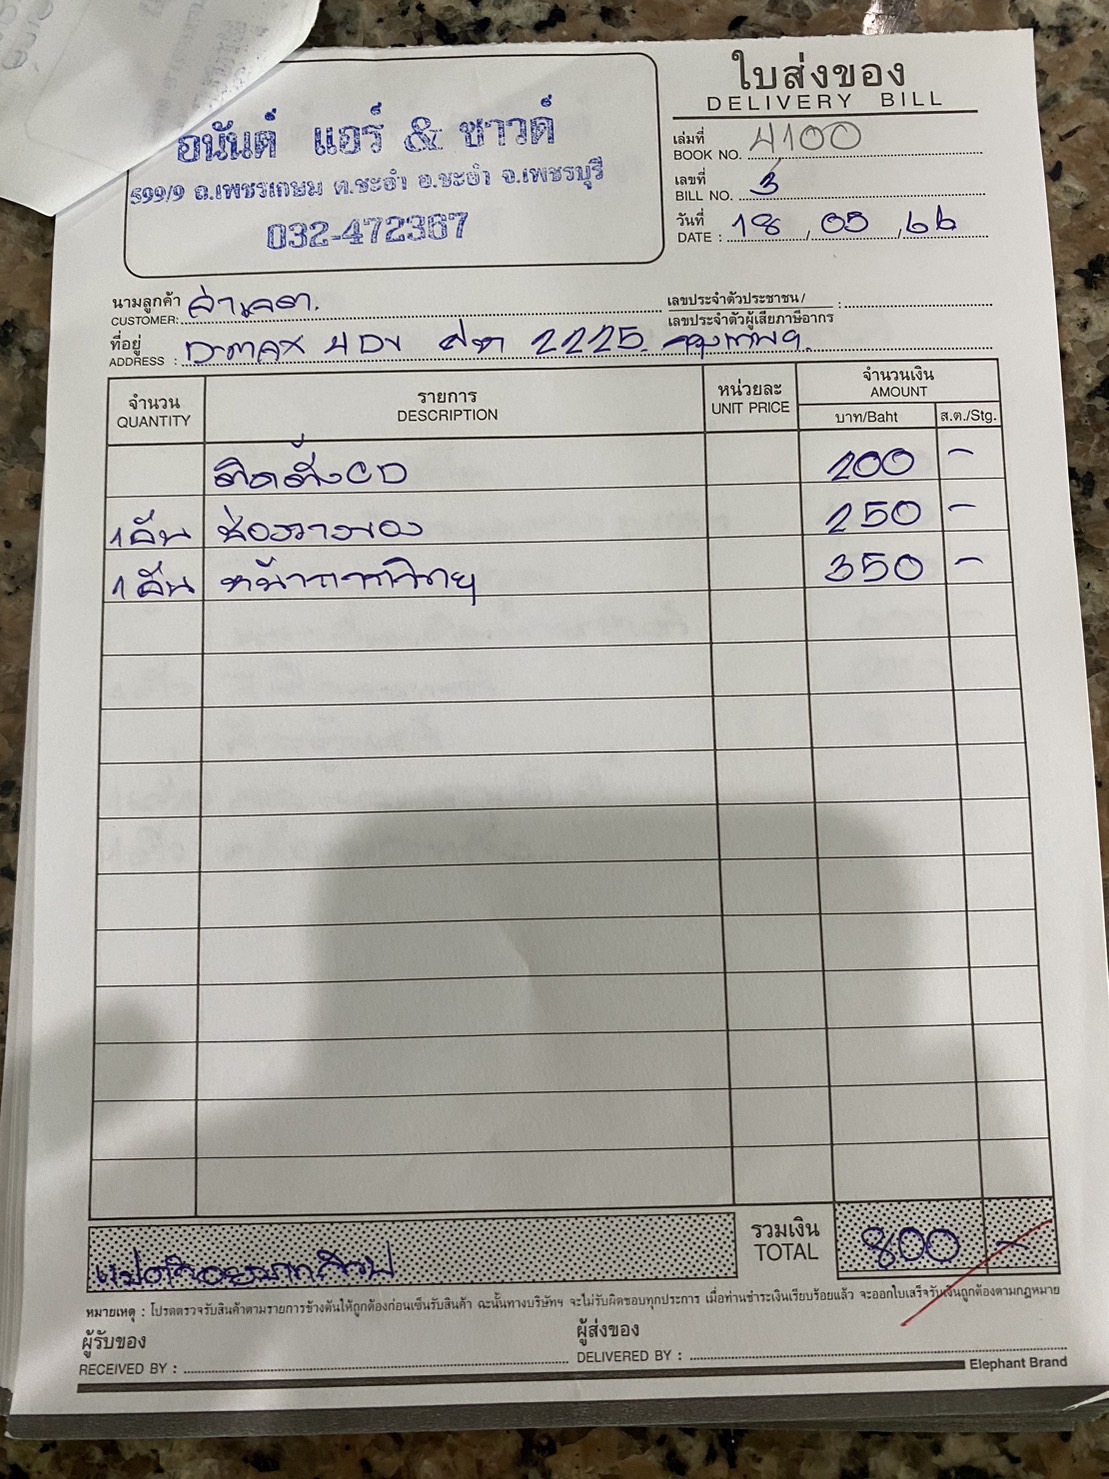 ใบส่งของ
DELIVERY BILL
อนันต์ แอร์ & ซาวด์
599/9 ถ.เพชรเกษม ต.ชะอำ อ.ชะอำ จ.เพชรบุรี
032-472367
เล่มที่
BOOK NO. 4100
เลขที่
BILL NO. 3
วันที่
DATE : 18 / 05 / 66
นามลูกค้า
CUSTOMER:
เลขประจำตัวประชาชน /
เลขประจำตัวผู้เสียภาษีอากร :
ที่อยู่
ADDRESS : D-max 4 Dr 2225 กรุงเทพฯ
จำนวน รายการ หน่วยละ จำนวนเงิน
QUANTITY DESCRIPTION UNIT PRICE AMOUNT
บาท/Baht ส.ต./Stg.
ติดตั้ง CD 200 -
1 อัน ช่องวางของ 250 -
1 อัน หน้ากากวิทยุ 350 -
แปดร้อยบาทถ้วน รวมเงิน 800 -
TOTAL
หมายเหตุ : โปรดตรวจรับสินค้าตามรายการข้างต้นให้ถูกต้องก่อนเซ็นรับสินค้า ฉะนั้นทางบริษัทฯ จะไม่รับผิดชอบทุกประการ เมื่อท่านชำระเงินเรียบร้อยแล้ว จะออกใบเสร็จรับเงินถูกต้องตามกฎหมาย
ผู้รับของ ผู้ส่งของ
RECEIVED BY : DELIVERED BY :
Elephant Brand